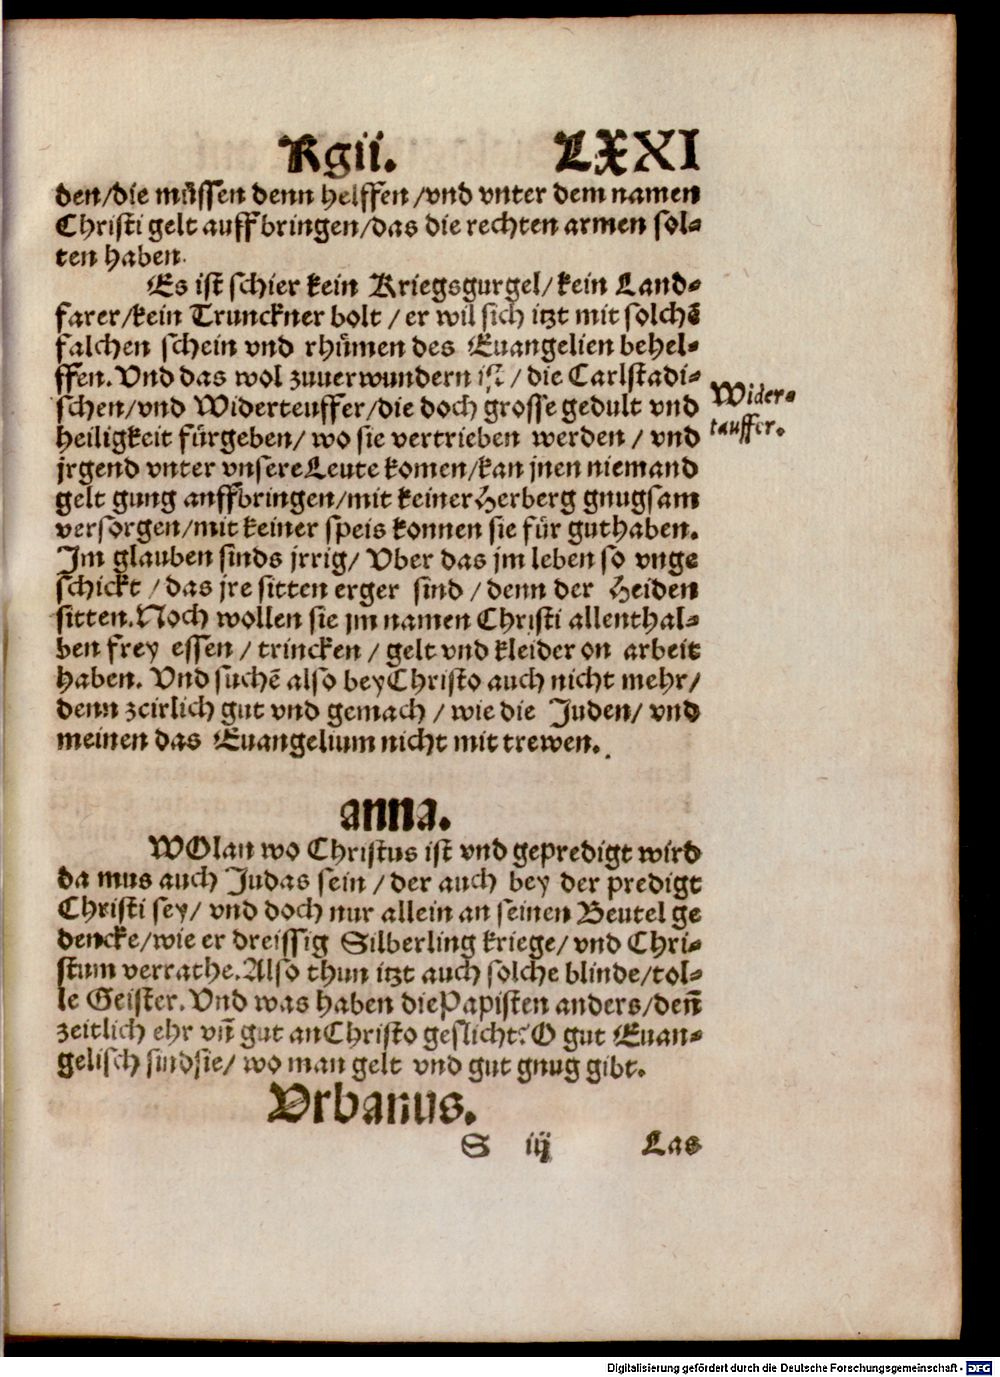 Rgii. LXXI
den/die müssen denn helffen/vnd vnter dem namen
Christi gelt auffbringen/das die rechten armen sol-
ten haben.
Es ist schier kein Kriegsgurgel/kein Land-
farer/kein Trunckner bolt/er wil sich itzt mit solchē
falchen schein vnd rhümen des Euangelien behel-
ffen. Vnd das wol zuuerwundern ist/die Carlstadi-
schen/vnd Widerteuffer/die doch grosse gedult vnd
heiligkeit fürgeben/wo sie vertrieben werden/vnd
jrgend vnter vnsere Leute komen/kan jnen niemand
gelt gung auffbringen/mit keiner Herberg gnugsam
versorgen/mit keiner speis konnen sie für guthaben.
Im glauben sinds jrrig/Vber das jm leben so vnge
schickt/das jre sitten erger sind/denn der Heiden
sitten. Noch wollen sie jm namen Christi allenthal-
ben frey essen/trincken/gelt vnd kleider on arbeit
haben. Vnd suchē also bey Christo auch nicht mehr/
denn zeirlich gut vnd gemach/wie die Juden/vnd
meinen das Euangelium nicht mit trewen.
Wider-
tauffer.
anna.
WOlan wo Christus ist vnd gepredigt wird
da mus auch Judas sein/der auch bey der predigt
Christi sey/vnd doch nur allein an seinen Beutel ge
dencke/wie er dreissig Silberling kriege/vnd Chri-
stum verrathe. Also thun itzt auch solche blinde/tol-
le Geister. Vnd was haben die Papisten anders/deñ
zeitlich ehr vñ gut an Christo geslicht? O gut Euan-
gelisch sindsie/wo man gelt vnd gut gnug gibt.
Vrbanus.
S iij Las
Digitalisierung gefördert durch die Deutsche Forschungsgemeinschaft - DFG